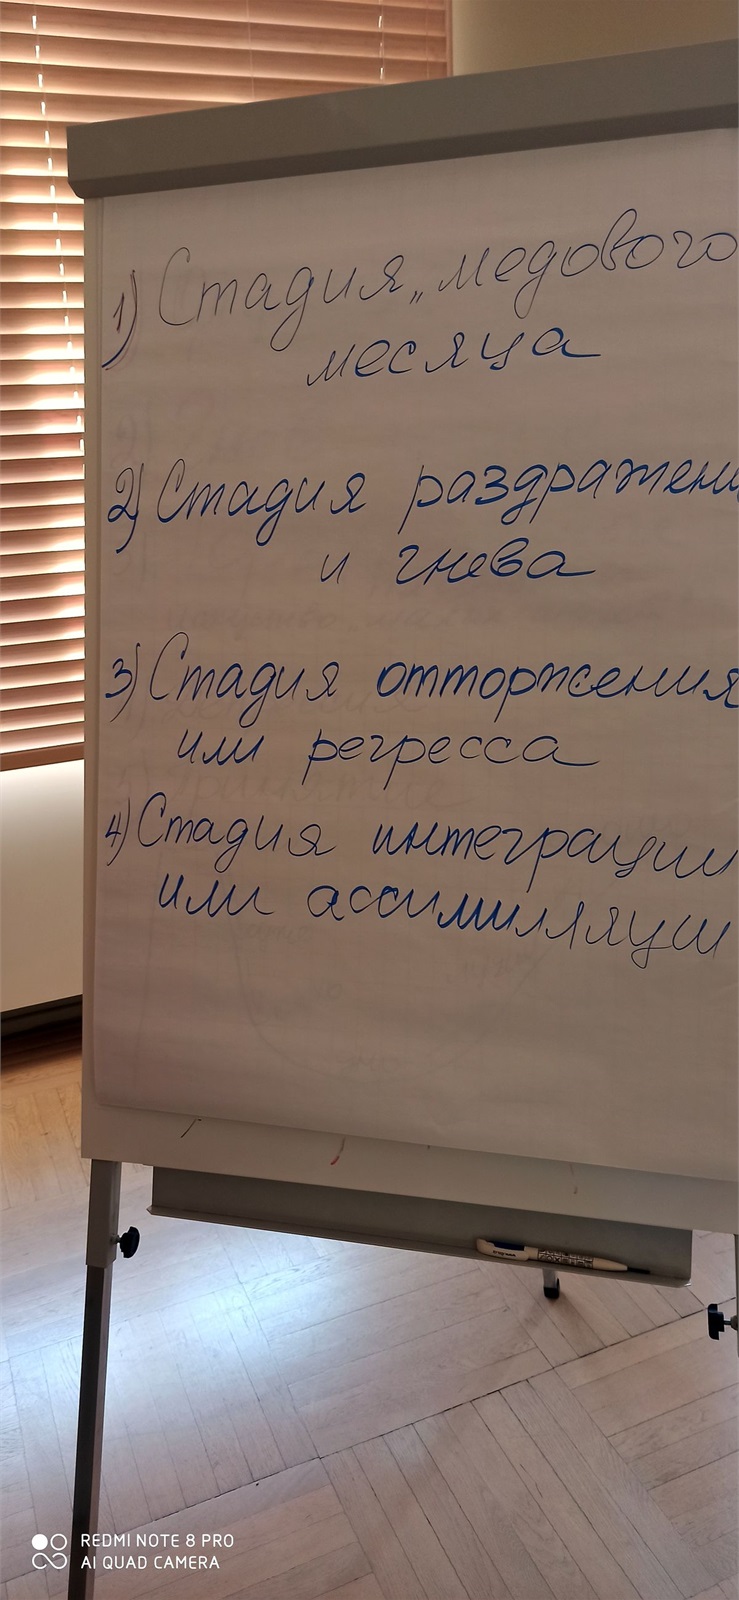 1) Стадия „медового
месяца
2) Стадия раздражени
и гнева
3) Стадия отторжения
или регресса
4) Стадия интеграции
или ассимилляции
REDMI NOTE 8 PRO
AI QUAD CAMERA